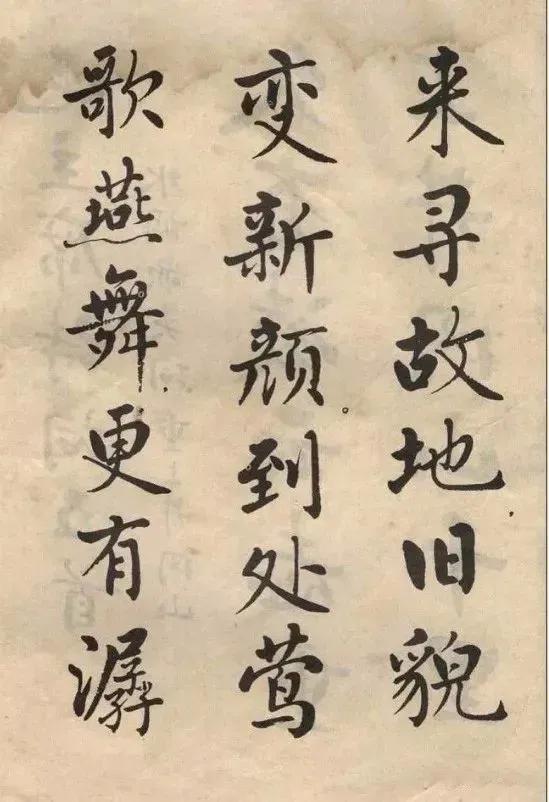 来寻故地，旧貌
变新颜。到处莺
歌燕舞，更有潺